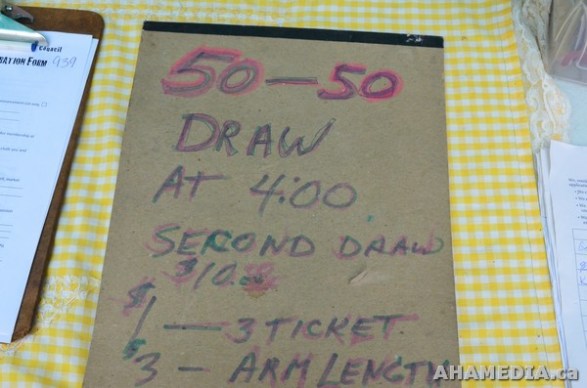 Council
ATION FORM 939
50 — 50
DRAW
AT 4:00
SECOND DRAW
$10.00
$1 — 3 TICKET
$3 — ARM LENGTH
AHAMEDIA.ca